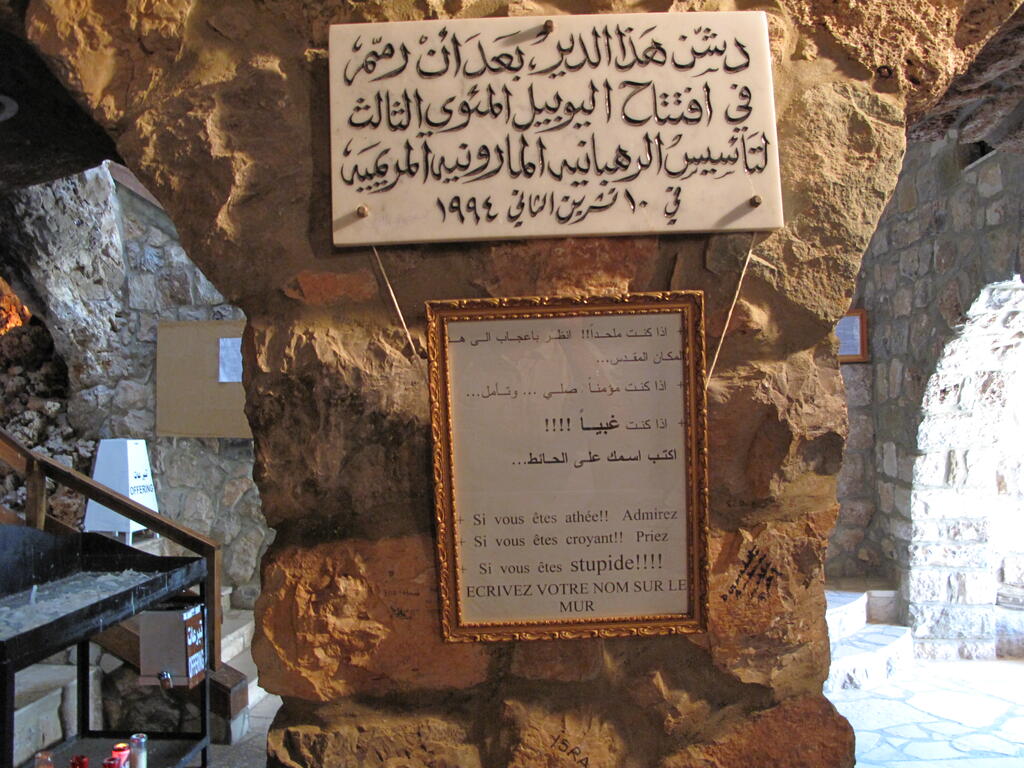 دشّن هذا الدير، بعد أن رمّم،
في افتتاح اليوبيل المئوي الثالث
لتأسيس الرهبانيه المارونيه المريميه
في ١٠ تشرين الثاني ١٩٩٤
+ اذا كنت ملحداً!! انظر بأعجاب الى هـ
المكان المقدس...
+ اذا كنت مؤمناً صلي ... وتأمل...
+ اذا كنت غبيــاً !!!!
اكتب اسمك على الحائط...
+ Si vous êtes athée!! Admirez
+ Si vous êtes croyant!! Priez
+ Si vous êtes stupide!!!!
ECRIVEZ VOTRE NOM SUR LE
MUR
OFFERING
ISRA